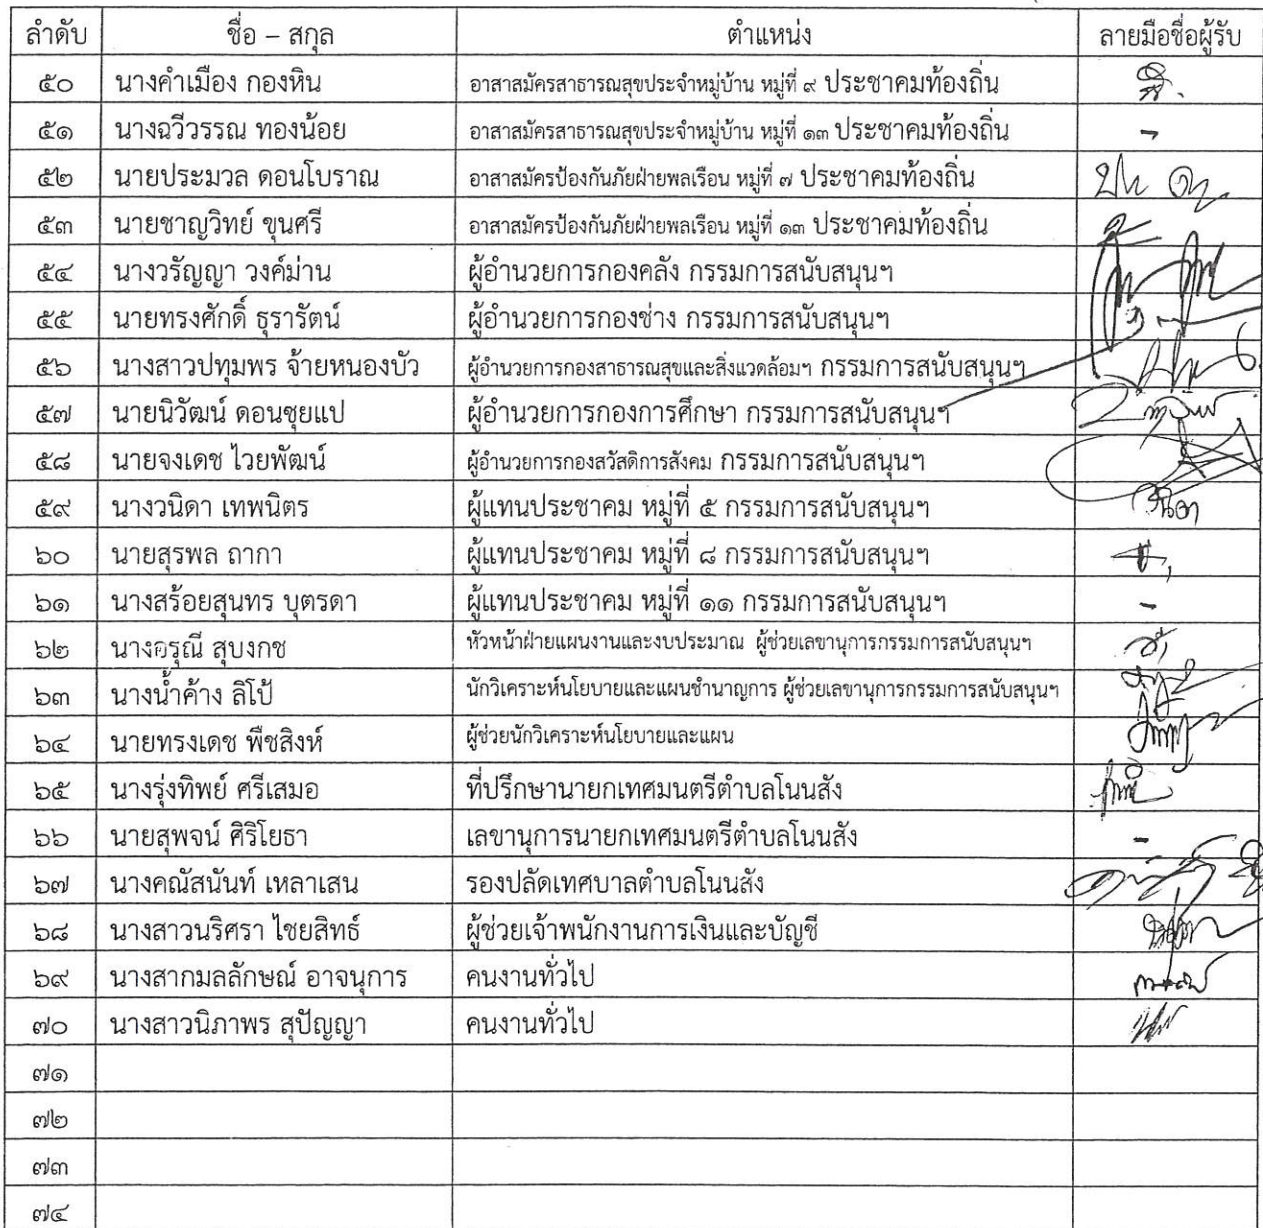 ลำดับ ชื่อ – สกุล ตำแหน่ง ลายมือชื่อผู้รับ
๕๐ นางคำเมือง กองหิน อาสาสมัครสาธารณสุขประจำหมู่บ้าน หมู่ที่ ๙ ประชาคมท้องถิ่น
๕๑ นางฉวีวรรณ ทองน้อย อาสาสมัครสาธารณสุขประจำหมู่บ้าน หมู่ที่ ๑๓ ประชาคมท้องถิ่น -
๕๒ นายประมวล ดอนโบราณ อาสาสมัครป้องกันภัยฝ่ายพลเรือน หมู่ที่ ๗ ประชาคมท้องถิ่น
๕๓ นายชาญวิทย์ ขุนศรี อาสาสมัครป้องกันภัยฝ่ายพลเรือน หมู่ที่ ๑๓ ประชาคมท้องถิ่น
๕๔ นางวรัญญา วงค์ม่าน ผู้อำนวยการกองคลัง กรรมการสนับสนุนฯ
๕๕ นายทรงศักดิ์ ธุรารัตน์ ผู้อำนวยการกองช่าง กรรมการสนับสนุนฯ
๕๖ นางสาวปทุมพร จ้ายหนองบัว ผู้อำนวยการกองสาธารณสุขและสิ่งแวดล้อมฯ กรรมการสนับสนุนฯ
๕๗ นายนิวัฒน์ ดอนซุยแป ผู้อำนวยการกองการศึกษา กรรมการสนับสนุนฯ
๕๘ นายจงเดช ไวยพัฒน์ ผู้อำนวยการกองสวัสดิการสังคม กรรมการสนับสนุนฯ
๕๙ นางวนิดา เทพนิตร ผู้แทนประชาคม หมู่ที่ ๕ กรรมการสนับสนุนฯ
๖๐ นายสุรพล ถากา ผู้แทนประชาคม หมู่ที่ ๘ กรรมการสนับสนุนฯ
๖๑ นางสร้อยสุนทร บุตรดา ผู้แทนประชาคม หมู่ที่ ๑๑ กรรมการสนับสนุนฯ -
๖๒ นางอรุณี สุบงกช หัวหน้าฝ่ายแผนงานและงบประมาณ ผู้ช่วยเลขานุการกรรมการสนับสนุนฯ
๖๓ นางน้ำค้าง ลิโป้ นักวิเคราะห์นโยบายและแผนชำนาญการ ผู้ช่วยเลขานุการกรรมการสนับสนุนฯ
๖๔ นายทรงเดช พืชสิงห์ ผู้ช่วยนักวิเคราะห์นโยบายและแผน
๖๕ นางรุ่งทิพย์ ศรีเสมอ ที่ปรึกษานายกเทศมนตรีตำบลโนนสัง
๖๖ นายสุพจน์ ศิริโยธา เลขานุการนายกเทศมนตรีตำบลโนนสัง -
๖๗ นางคณัสนันท์ เหลาเสน รองปลัดเทศบาลตำบลโนนสัง
๖๘ นางสาวนริศรา ไชยสิทธ์ ผู้ช่วยเจ้าพนักงานการเงินและบัญชี
๖๙ นางสากมลลักษณ์ อาจนุการ คนงานทั่วไป
๗๐ นางสาวนิภาพร สุปัญญา คนงานทั่วไป
๗๑
๗๒
๗๓
๗๔